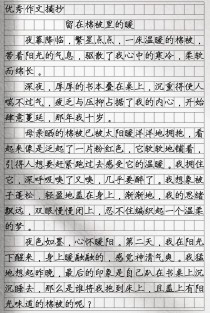 优秀作文摘抄
留在棉被里的暖
夜幕降临，繁星点点，一床温暖的棉被，
带着阳光的气息，驱散了我心中的寒冷，柔软
而绵长。
深夜，厚厚的书本叠在桌上，沉重得使人
喘不过气，疲乏与压抑占据了我的内心，开始
肆意蔓延，那年我十岁。
母亲晒的棉被已被太阳暖洋洋地拥抱，看
起来像是泛起了一片粉红色，它软软地铺着，
引得人想要赶紧跑过去感受它的温暖。我拥住
它，深呼吸嗅了又嗅，几乎要醉了。我想象被
子蓬松，轻盈地盖在身上，渐渐地，我的思绪
飘远，双眼慢慢闭上，忍不住编织起一个温柔
的梦。
夜色如墨，心怀暖阳。第二天，我在阳光
下醒来，身上暖融融的，感觉神清气爽。我猛
地想起昨晚，最后的印象是自己趴在书桌上沉
沉睡去，那么是谁将我抱到床上，且盖上有阳
光味道的棉被的呢？